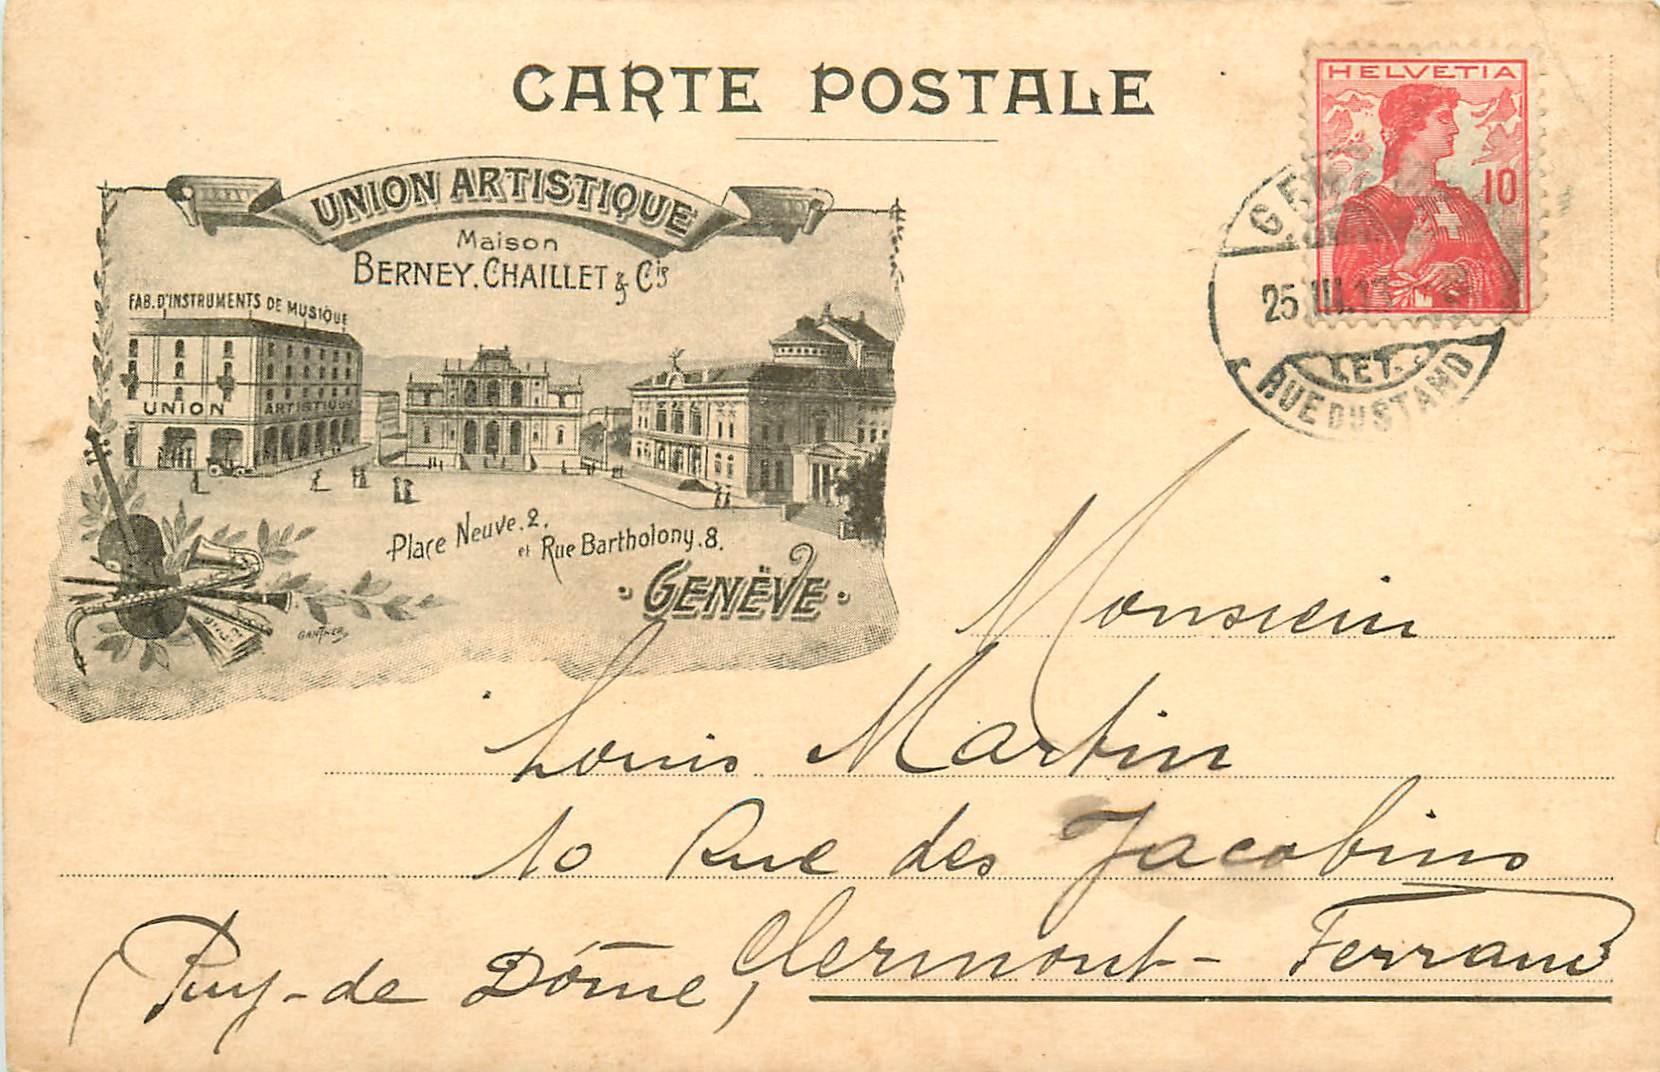 CARTE POSTALE
HELVETIA
10
UNION ARTISTIQUE
Maison
BERNEY. CHAILLET & Cie
FAB. D'INSTRUMENTS DE MUSIQUE
UNION ARTISTIQUE
Place Neuve. 2.
et Rue Bartholony. 8.
GENËVE
GANTNER
25.III.13
LET.
RUE DU STAND
Monsieur
Louis Martin
10 Rue des Jacobins
Clermont-Ferrand
(Puy-de Dôme)